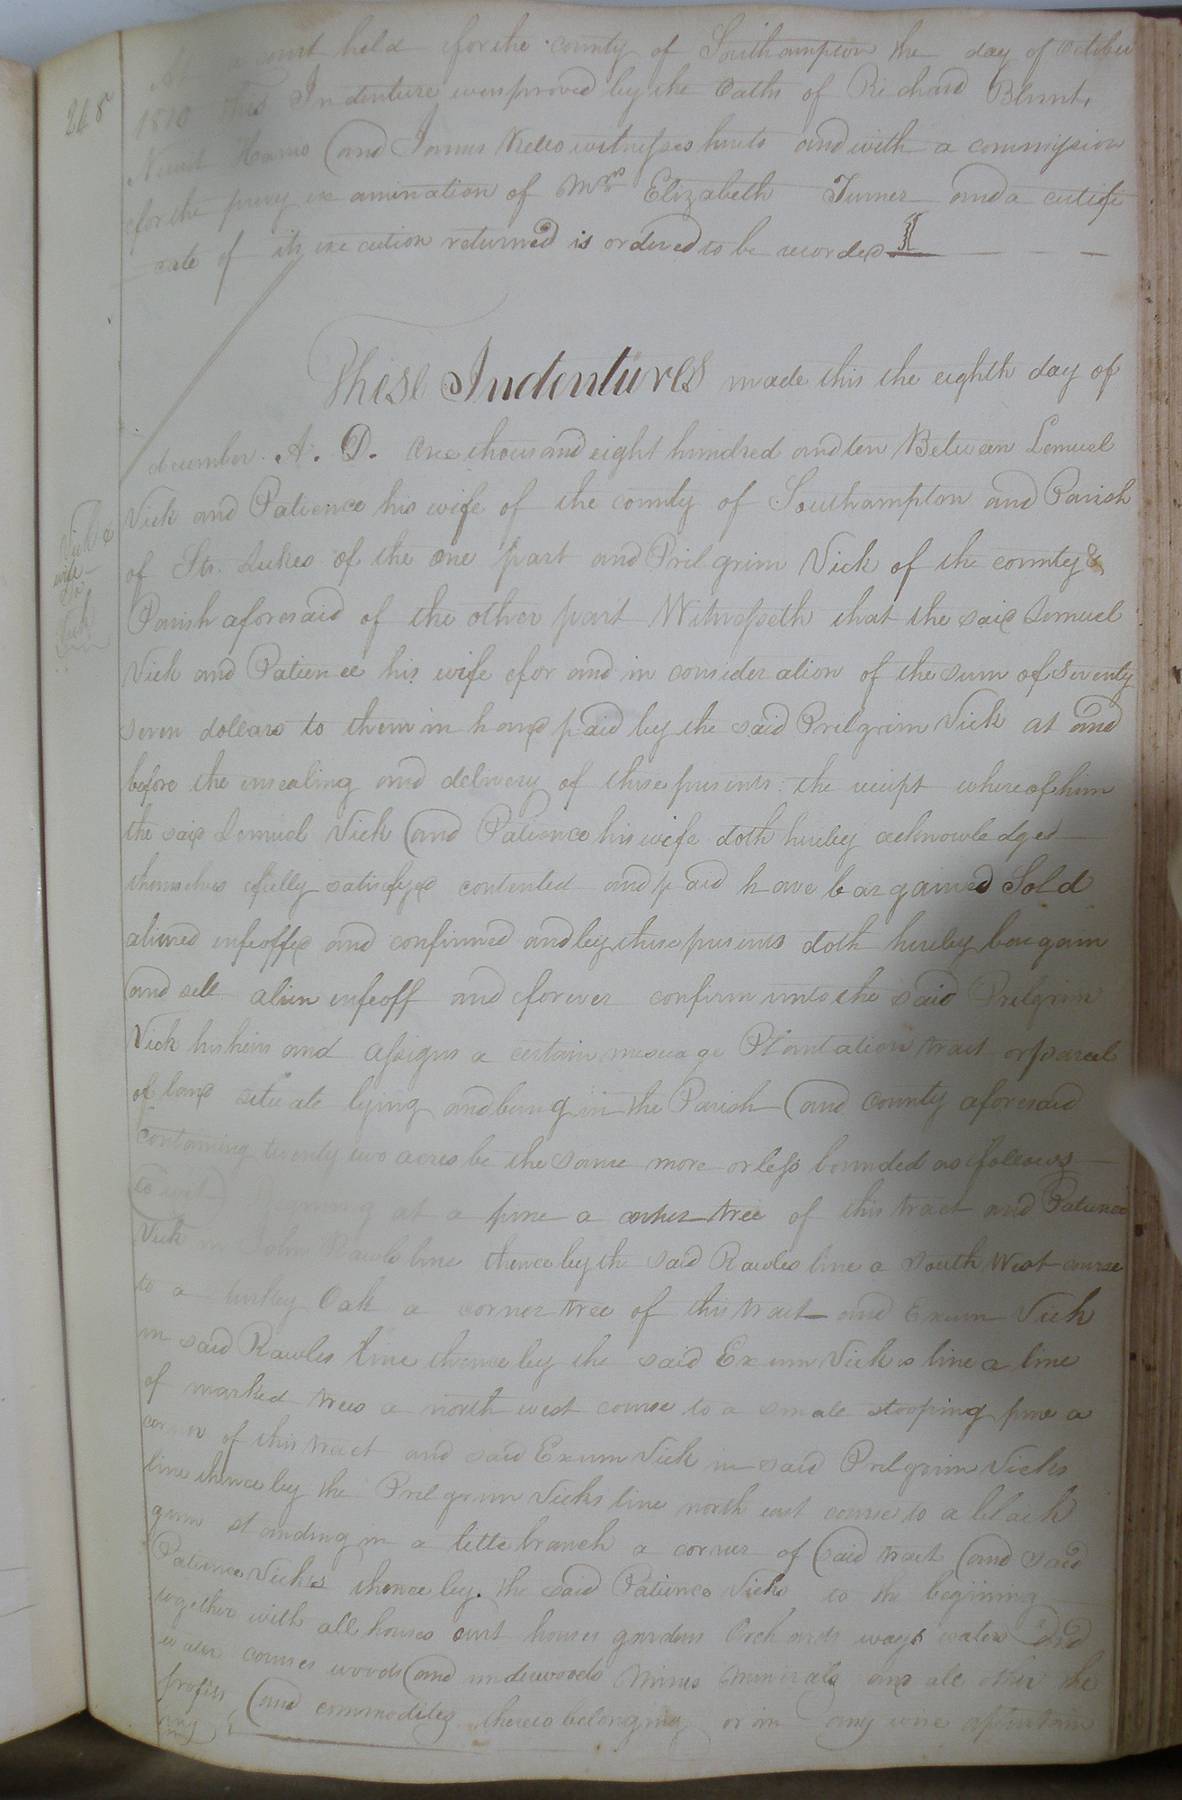 248
At a court held for the county of Southampton the day of October
1810 This Indenture was proved by the Oaths of Richard Blunt,
Newit Harris and James Wells witnesses hereto and with a commission
for the privy examination of Mrs Elizabeth Turner and a certifi
cate of its execution returned is ordered to be recorded
These Indentures made this the eighth day of
december A. D. One thousand eight hundred and ten Between Lemuel
Vick and Patience his wife of the county of Southampton and Parish
of St. Lukes of the one part and Prilgrim Vick of the county &
Vick &
wife
To
Vick
Parish aforesaid of the other part Witnesseth that the said Lemuel
Vick and Patience his wife for and in consideration of the sum of seventy
seven dollars to them in hand paid by the said Prilgrim Vick at and
before the ensealing and delivery of these presents the receipt whereof him
the said Lemuel Vick and Patience his wife doth hereby acknowledged
themselves fully satisfyed contented and paid have bargained Sold
aliened enfeoffed and confirmed and by these presents doth hereby bargain
and sell alien enfeoff and forever confirm unto the said Prilgrim
Vick his heirs and assigns a certain messuage Plantation tract or parcel
of land situate lying and being in the Parish and County aforesaid
containing twenty two acres be the same more or less bounded as follows
to wit) Begining at a pine a corner tree of this tract and Patience
Vick in John Rawls line thence by the said Rawles line a South West course
to a turkey Oak a corner tree of this tract and Exum Vick
in said Rawles line thence by the said Exum Vicks line a line
of marked trees a north west course to a smale stooping pine a
corner of this tract and said Exum Vick in said Prilgrim Vicks
line thence by the Prilgrim Vicks line north east course to a black
gum standing in a little branch a corner of said tract and said
Patience Vicks thence by the said Patience Vicks to the begining
together with all houses out houses gardens Orchards ways waters and
water courses woods and underwoods Mines Minerals and all other the
profits and commodites thereto belonging or in any wise appertain
ing